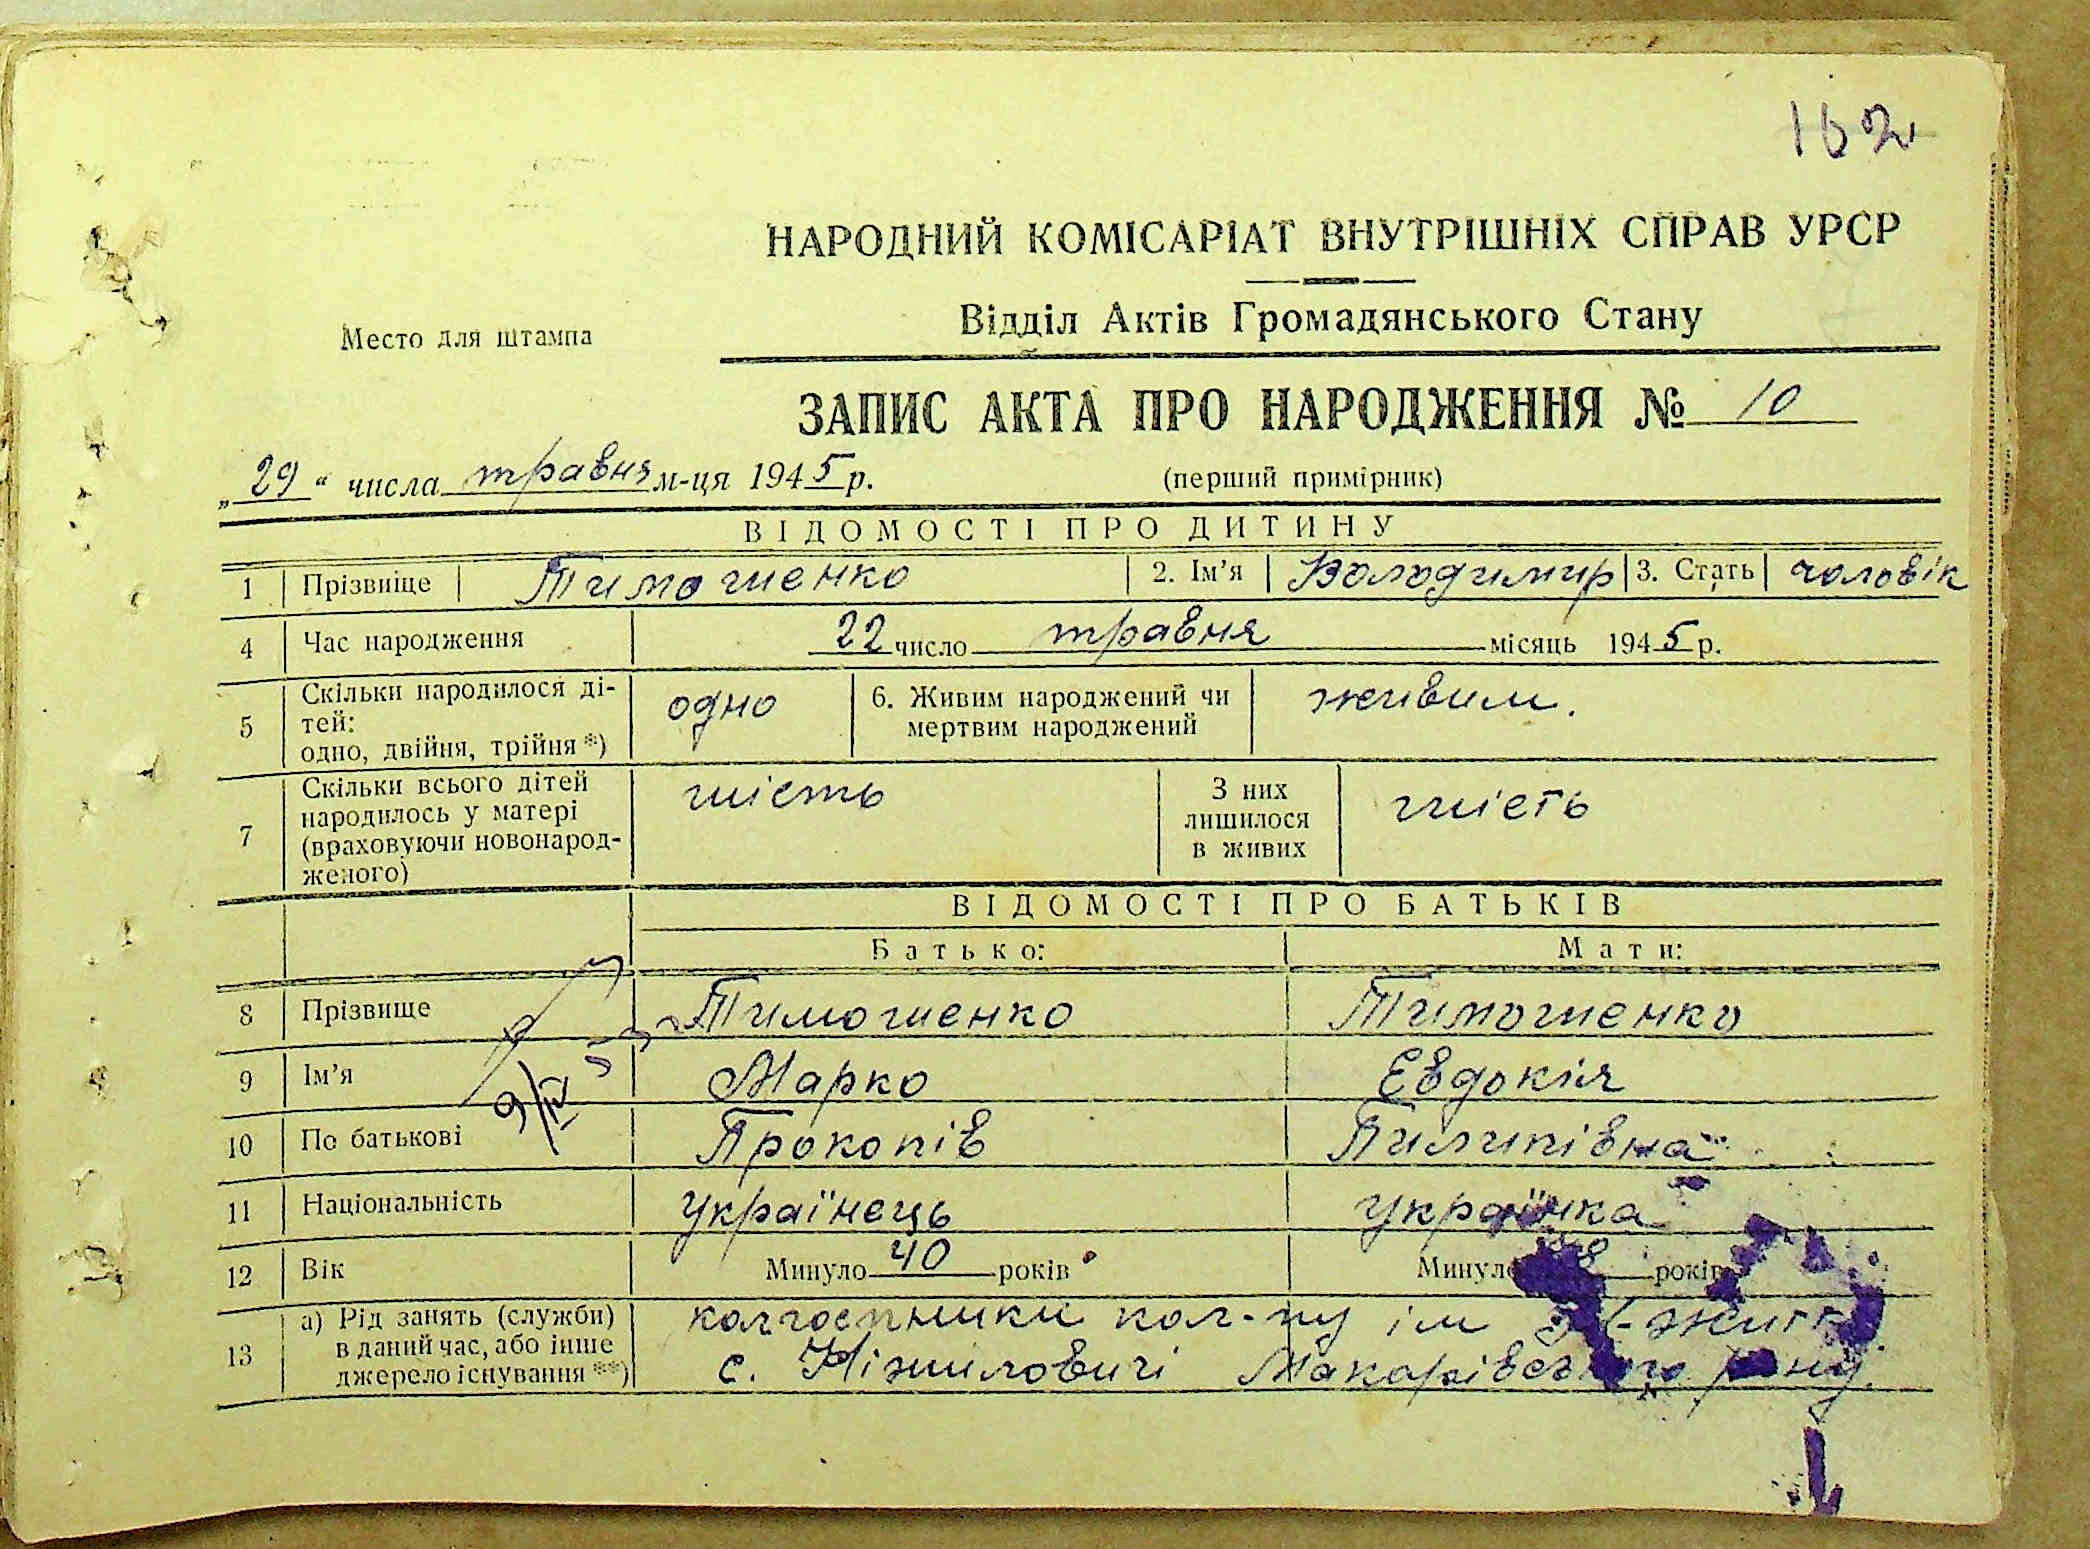 162
НАРОДНИЙ КОМІСАРІАТ ВНУТРІШНІХ СПРАВ УРСР
Відділ Актів Громадянського Стану
Место для штампа
ЗАПИС АКТА ПРО НАРОДЖЕННЯ № 10
„29“ числа травня м-ця 1945 р. (перший примірник)
ВІДОМОСТІ ПРО ДИТИНУ
1 Прізвище Тимошенко 2. Ім'я Володимир 3. Стать чоловік
4 Час народження 22 число травня місяць 1945 р.
5 Скільки народилося ді-
тей:
одно, двійня, трійня *) одно 6. Живим народжений чи
мертвим народжений живим.
7 Скільки всього дітей
народилось у матері
(враховуючи новонарод-
женого) шість З них
лишилося
в живих шість
ВІДОМОСТІ ПРО БАТЬКІВ
Батько: Мати:
8 Прізвище Тимошенко Тимошенко
9 Ім'я Марко Євдокія
10 По батькові Прокопів Пилипівна
11 Національність Українець Українка
12 Вік Минуло 40 років Минуло 8 років
13 а) Рід занять (служби)
в даний час, або інше
джерело існування **) колгоспники кол-пу ім
с. Ніжиловичі Макарівського р-ну.
9/IV